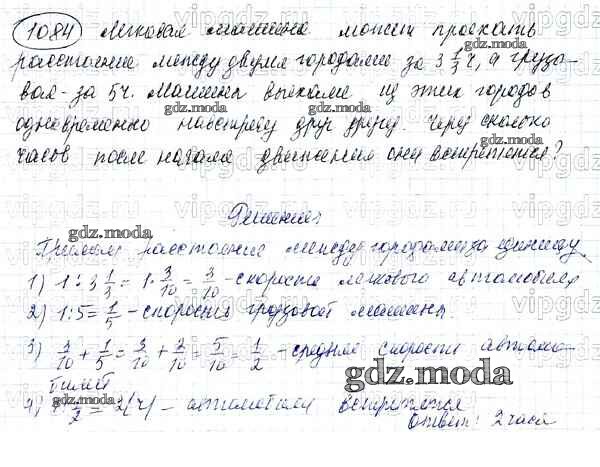 1084 Легковая машина может проехать
расстояние между двумя городами за 3 1/3 ч, а грузо-
вая - за 5 ч. Машины выехали из этих городов
одновременно навстречу друг другу. Через сколько
часов после начала движения они встретятся?
Решение
Примем расстояние между городами за единицу
1) 1 : 3 1/3 = 1 · 3/10 = 3/10 - скорость легкового автомобиля
2) 1 : 5 = 1/5 - скорость грузовой машины.
3) 3/10 + 1/5 = 3/10 + 2/10 = 5/10 = 1/2 - средние скорости автомо-
билей
4) 1/2 = 2 (ч) - автомобили встретятся
Ответ: 2 часа
gdz.moda
gdz.moda
gdz.moda
gdz.moda
gdz.moda
gdz.moda
gdz.moda
gdz.moda
vipgdz